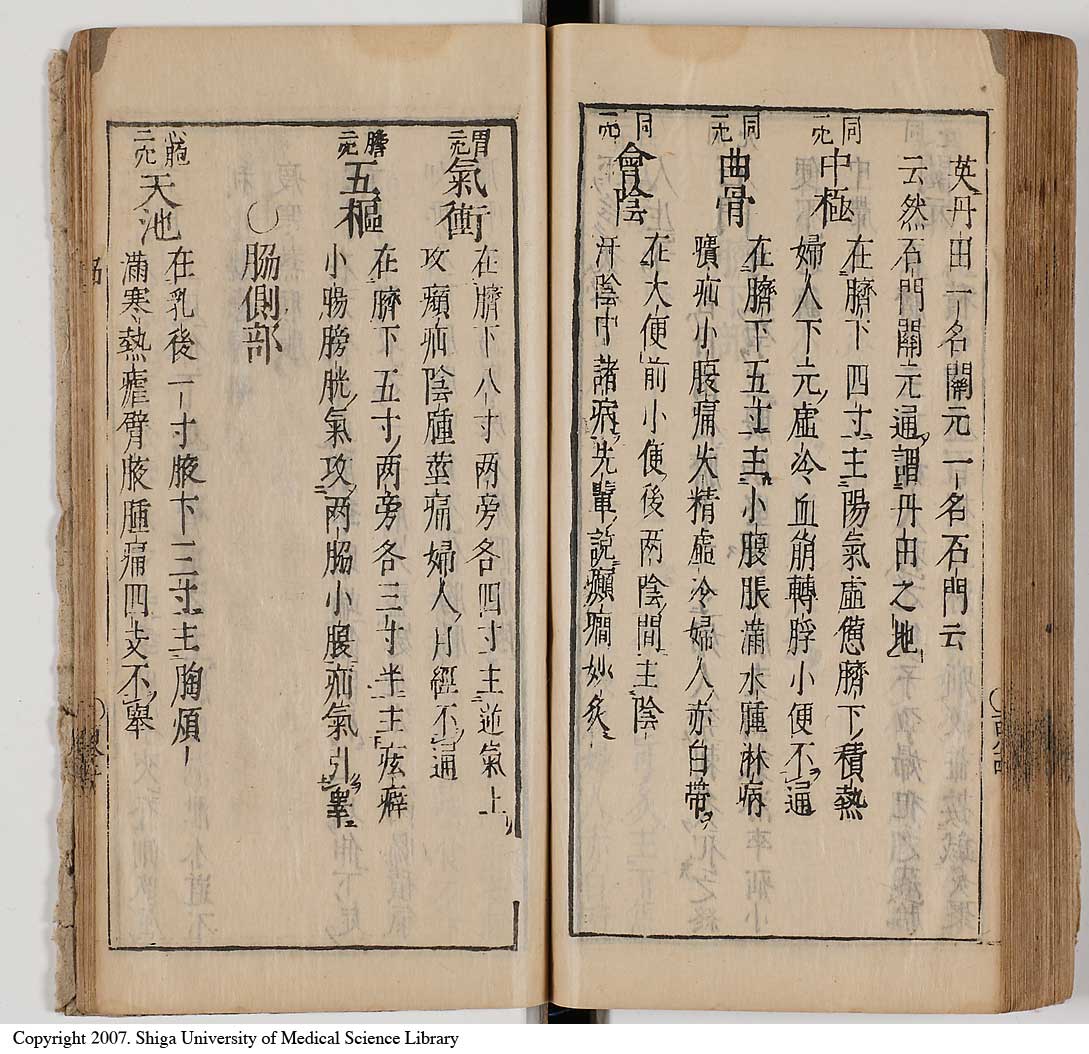 英丹田一名關元一名石門云
云然石門關元通謂丹田之地
同一穴
中極
在臍下四寸主陽氣虛憊臍下積熱
婦人下元虛冷血崩轉脬小便不通
同一穴
曲骨
在臍下五寸主小腹脹滿水腫淋病
㿉疝小腹痛失精虛冷婦人赤白帶
同一穴
會陰
在大便前小便後兩陰間主陰
汗陰中諸病先輩說癲癇妙炙
胃二穴
氣衝
在臍下八寸两旁各四寸主逆氣上
攻㿉疝陰腫莖痛婦人月經不通
膽二穴
五樞
在臍下五寸两旁各三寸半主痃癖
小腸膀胱氣攻两脇小腹疝氣引睾
脇側部
心胞二穴
天池
在乳後一寸腋下三寸主胸煩
滿寒熱瘧臂腋腫痛四支不舉
Copyright 2007. Shiga University of Medical Science Library